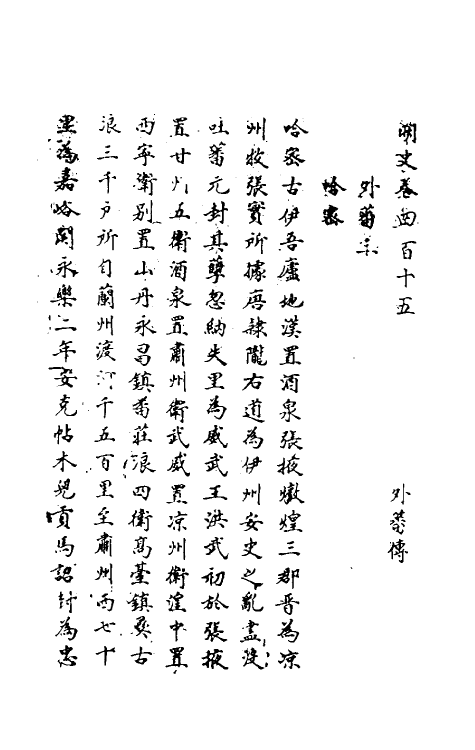 明史卷四百十五 外蕃傳
外蕃三
哈密
哈密古伊吾廬地漢置酒泉張掖燉煌三郡晉為凉
州牧張寔所據唐隸隴右道為伊州安史之亂盡没
吐蕃元封其孽忽納失里為威武王洪武初於張掖
置甘州五衛酒泉置肅州衛武威置凉州衛湟中置
西寧衛别置山丹永昌鎮番莊浪四衛髙臺鎮夷古
浪三千户所自蘭州渡河千五百里至肅州西七十
里為嘉峪関永樂二年安克帖木兒貢馬詔封為忠